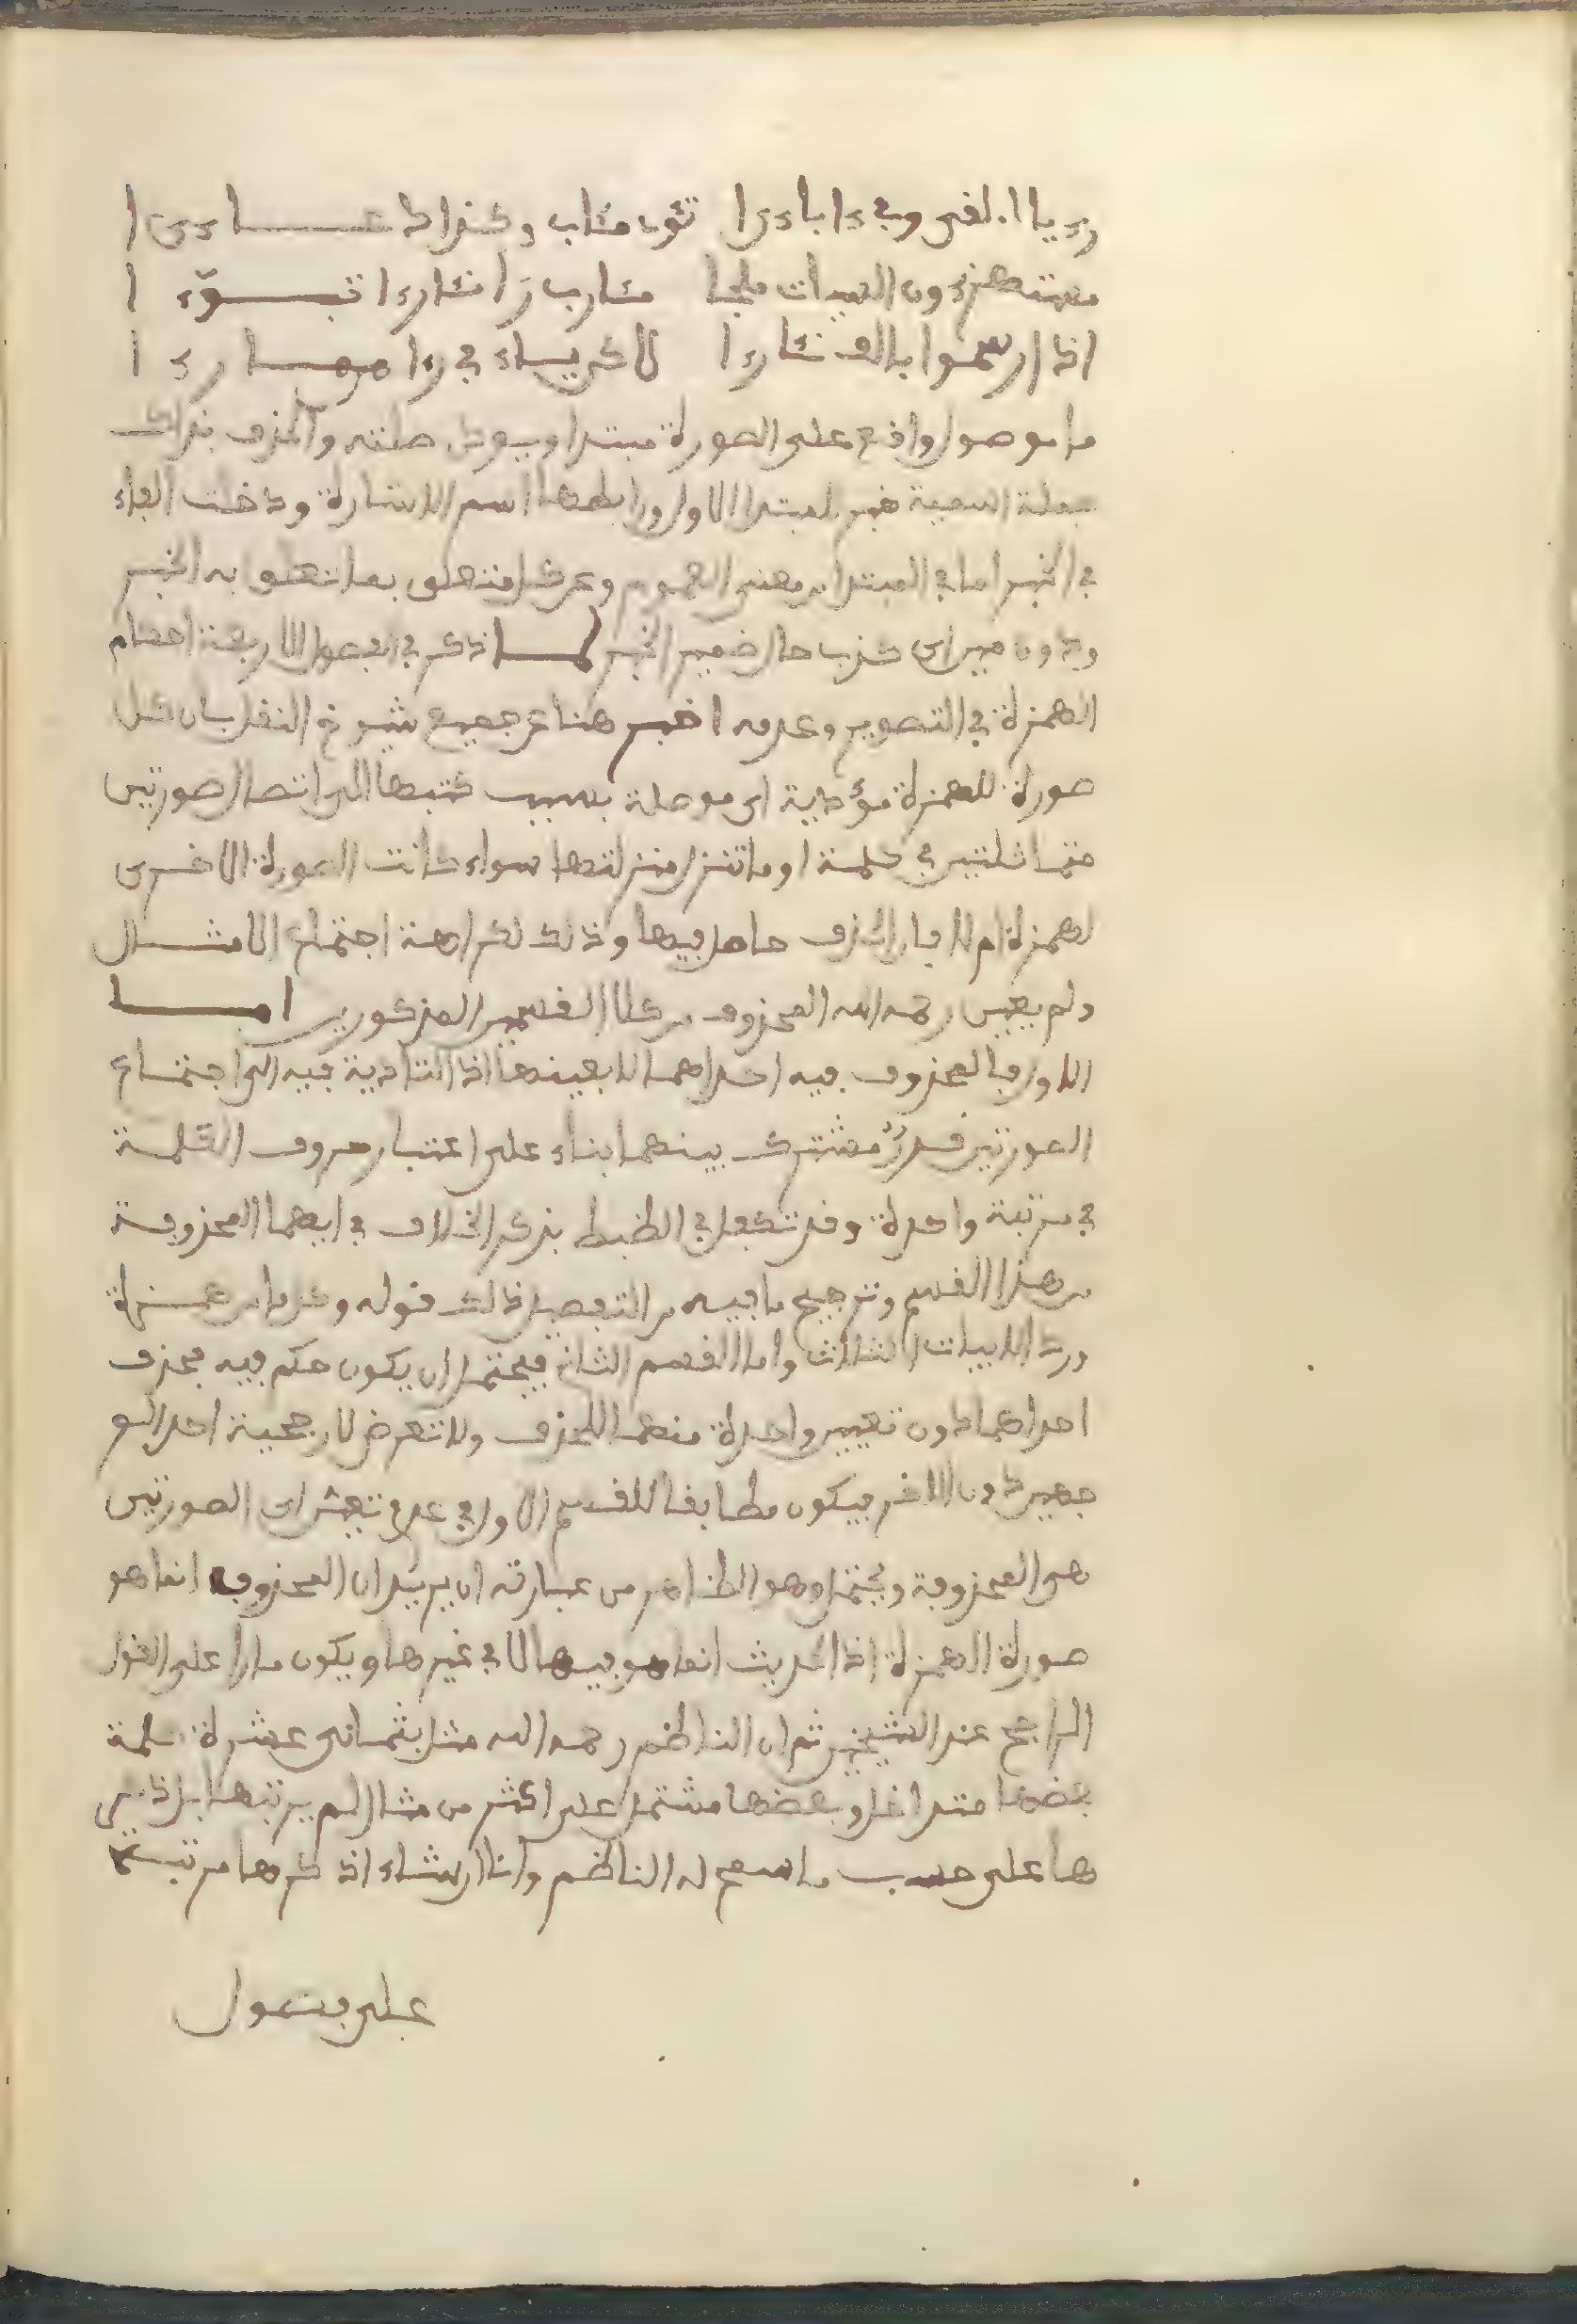 رءيا ءالفى وفي ءاباءى تئوى مئاب وكذا دعاءى
مستهزءون السيئات ملجا مئارب را نئارءا تبوءا
اذا رسموا بالف نئا رءا لاكن ياء في رءا مهما رءا
ما موصول واقع على الصورة مبتدا ويودي صلته والحذف بذاك
جملة اسمية خبر لمبتدا الاول ورابطها اسم الاشارة ودخلت الفاء
في الخبر لما في المبتدا من معنى العموم وعن كل متعلق بما تعلق به الخبر
ودون مين اى كذب حال ضمير الخبر لما ذكر في الفصول الاربعة احكام
الهمزة في التصوير وعدمه اخبر هنا عن جميع شيوخ النقل بان كل
صورة للهمزة مؤدية اى موصلة بسبب كتبها الى اتصال صورتين
متماثلتين في كلمة او ما تنزل منزلتها سواء كانت الصورة الاخرى
لهمزة ام لا فان الحذف حاصل فيها وذلك لكراهة اجتماع الامثال
ولم يعين رحمه الله المحذوف من كلا القسمين المذكورين اما
الاول فالمحذوف فيه احداهما لا بعينها اذ التادية فيه الى اجتماع
الصورتين قدر مشترك بينهما بناء على اعتبار حروف الكلمة
في مرتبة واحدة وقد تكفل في الضبط بذكر الخلاف في ايهما المحذوفة
من هذا القسم وترجيح ما فيه من التفصيل ذلك قوله وكل ما من همزة
ورد الابيات الثلاث واما القسم الثاني فيحتمل ان يكون حكم فيه بحذف
احداهما دون تعيين واحدة منهما للحذف ولا تعرض لارجحية احد الو
جهين دون الاخر فيكون مطابقا للقسم الاول في عدم تعيين اى الصورتين
هي المحذوفة ويحتمل وهو الظاهر من عبارته ان يريد ان المحذوف انما هو
صورة الهمزة اذ الحديث انما هو فيها لا في غيرها ويكون مارا على القول
الراجح عند الشيخين ثم ان الناظم رحمه الله مثل بثماني عشرة كلمة
بعضها متداخل وبعضها مشتمل على اكثر من مثال لم يرتبها بل ذكر
ها على حسب ما سمح له الناظم وانا ان شاء اذكرها مرتبة
على فصول